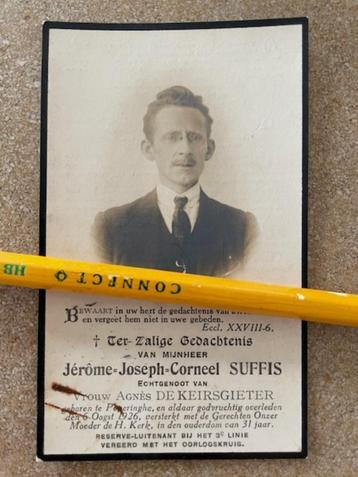 CONNECT HB
BEWAART in uw hert de gedachtenis van
en vergeet hem niet in uwe gebeden.
Eccl. XXVIII-6.
† Ter Zalige Gedachtenis
VAN MIJNHEER
Jérôme-Joseph-Corneel SUFFIS
ECHTGENOOT VAN
Vrouw AGNÈS DE KEIRSGIETER
geboren te Poperinghe, en aldaar godvruchtig overleden
den 6 Oogst 1926, versterkt met de Gerechten Onzer
Moeder de H. Kerk, in den ouderdom van 31 jaar.
RESERVE-LUITENANT BIJ HET 3e LINIE
VEREERD MET HET OORLOGSKRUIS.